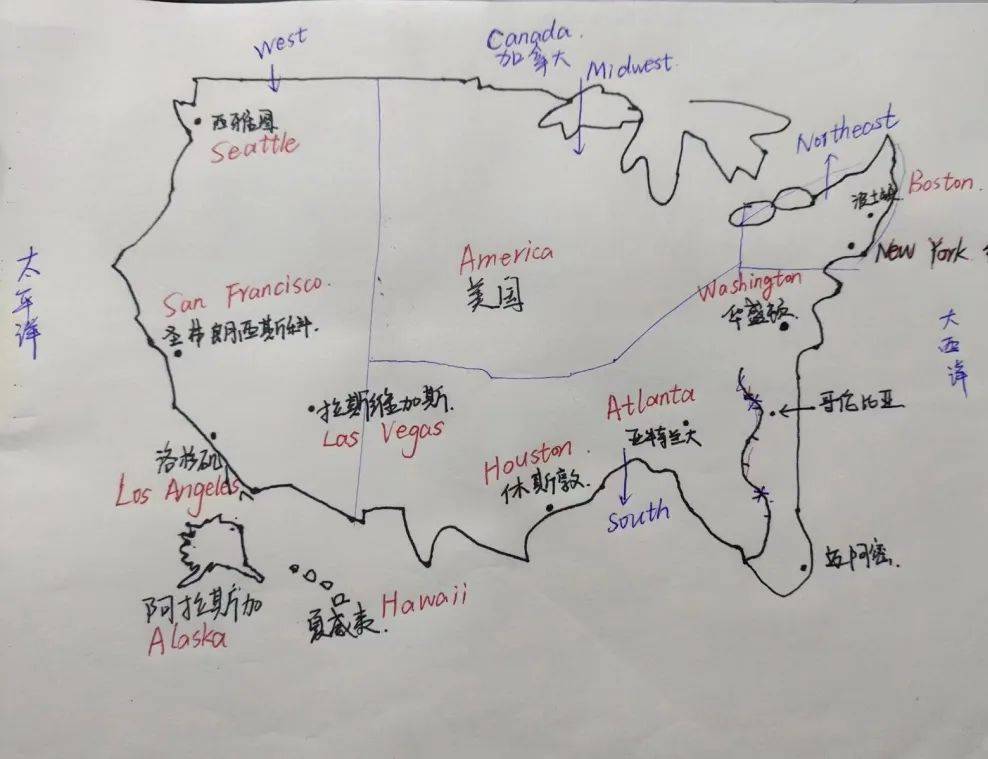 West
Canada.
加拿大
Midwest.
Northeast
西雅图
Seattle
波士顿
Boston.
太平洋
America
美国
New York
San Francisco.
圣弗朗西斯科.
Washington
华盛顿.
大西洋
拉斯维加斯.
Las Vegas
Atlanta
亚特兰大
哥伦比亚
洛杉矶
Los Angeles
Houston.
休斯敦.
South
迈阿密.
阿拉斯加
Alaska
夏威夷.
Hawaii